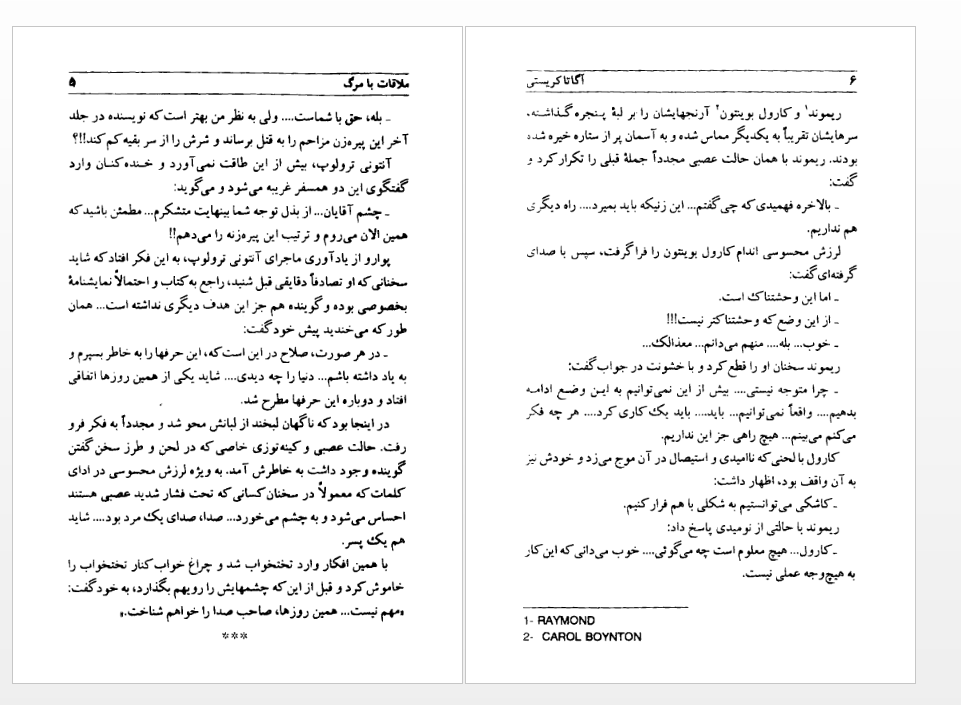 ملاقات با مرگ ۵
ـ بله، حق با شماست.... ولی به نظر من بهتر است که نویسنده در جلد
آخر این پیرەزن مزاحم را به قتل برساند و شرش را از سر بقیه کم کند!!؟
آنتونی ترولوپ، بیش از این طاقت نمی‌آورد و خنده‌کنان وارد
گفتگوی این دو همسفر غریبه می‌شود و می‌گوید:
ـ چشم آقایان... از بذل توجه شما بینهایت متشکرم... مطمئن باشید که
همین الان می‌روم و ترتیب این پیره‌زنه را می‌دهم!!
پوارو از یادآوری ماجرای آنتونی ترولوپ، به این فکر افتاد که شاید
سخنانی که او تصادفاً دقایقی قبل شنید، راجع به کتاب و احتمالاً نمایشنامهٔ
بخصوصی بوده و گوینده هم جز این هدف دیگری نداشته است... همان
طور که می‌خندید پیش خود گفت:
ـ در هر صورت، صلاح در این است که، این حرفها را به خاطر بسپرم و
به یاد داشته باشم... دنیا را چه دیدی.... شاید یکی از همین روزها اتفاقی
افتاد و دوباره این حرفها مطرح شد.
در اینجا بود که ناگهان لبخند از لبانش محو شد و مجدداً به فکر فرو
رفت. حالت عصبی و کینه‌توزی خاصی که در لحن و طرز سخن گفتن
گوینده وجود داشت به خاطرش آمد. به ویژه لرزش محسوسی در ادای
کلمات که معمولاً در سخنان کسانی که تحت فشار شدید عصبی هستند
احساس می‌شود و به چشم می‌خورد... صدا، صدای یک مرد بود.... شاید
هم یک پسر.
با همین افکار وارد تختخواب شد و چراغ خواب کنار تختخواب را
خاموش کرد و قبل از این که چشمهایش را رویهم بگذارد، به خود گفت:
«مهم نیست... همین روزها، صاحب صدا را خواهم شناخت.»
***
۶ آگاتا کریستی
ریموند۱ و کارول بوینتون۲ آرنجهایشان را بر لبهٔ پنجره گذاشته،
سرهایشان تقریباً به یکدیگر مماس شده و به آسمان پر از ستاره خیره شده
بودند. ریموند با همان حالت عصبی مجدداً جملهٔ قبلی را تکرار کرد و
گفت:
ـ بالاخره فهمیدی که چی گفتم... این زنیکه باید بمیرد.... راه دیگری
هم نداریم.
لرزش محسوسی اندام کارول بوینتون را فرا گرفت، سپس با صدای
گرفته‌ای گفت:
ـ اما این وحشتناک است.
ـ از این وضع که وحشتناکتر نیست!!!
ـ خوب... بله.... منهم می‌دانم... معذالک...
ریموند سخنان او را قطع کرد و با خشونت در جواب گفت:
ـ چرا متوجه نیستی.... بیش از این نمی‌توانیم به این وضع ادامه
بدهیم.... واقعاً نمی‌توانیم... باید.... باید یک کاری کرد.... هر چه فکر
می‌کنم می‌بینم... هیچ راهی جز این نداریم.
کارول با لحنی که ناامیدی و استیصال در آن موج می‌زد و خودش نیز
به آن واقف بود، اظهار داشت:
ـ کاشکی می‌توانستیم به شکلی با هم فرار کنیم.
ریموند با حالتی از نومیدی پاسخ داد:
ـ کارول... هیچ معلوم است چه می‌گوئی.... خوب می‌دانی که این کار
به هیچ‌وجه عملی نیست.
1- RAYMOND
2- CAROL BOYNTON